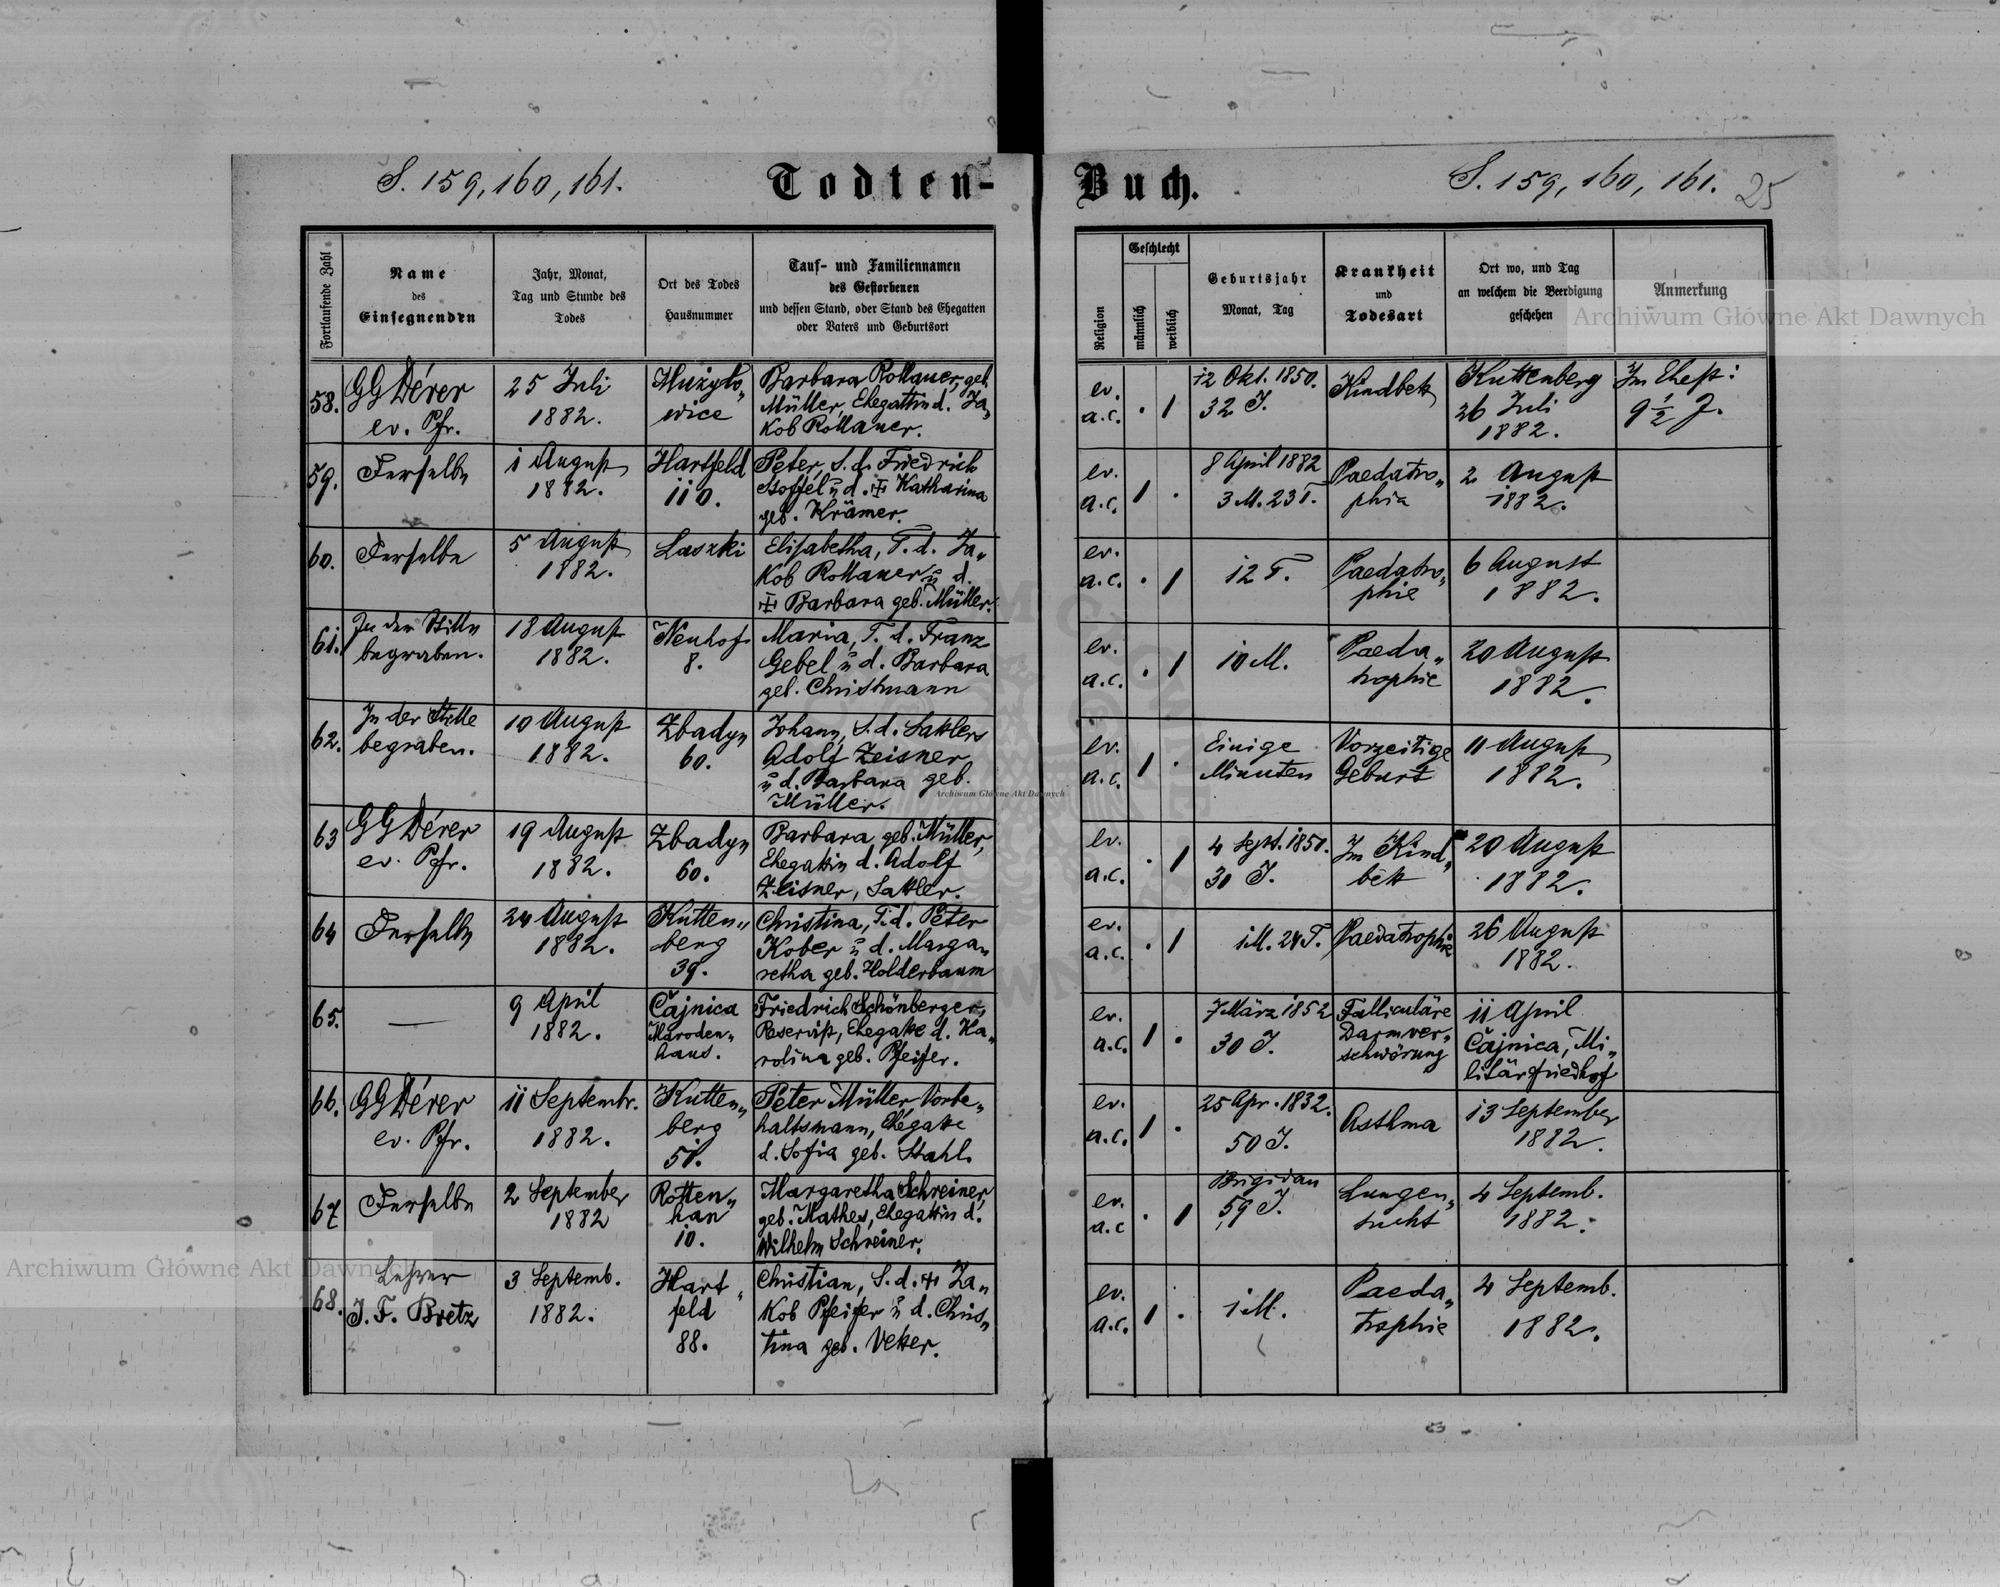 S. 159, 160, 161.
Todten-
Buch.
S. 159, 160, 161.
25
Fortlaufende Zahl
Name
des
Einsegnenden
Jahr, Monat,
Tag und Stunde des
Todes
Ort des Todes
Hausnummer
Tauf- und Familiennamen
des Gestorbenen
und dessen Stand, oder Stand des Ehegatten
oder Vaters und Geburtsort
Religion
Geschlecht
männlich
weiblich
Geburtsjahr
Monat, Tag
Krankheit
und
Todesart
Ort wo, und Tag
an welchem die Beerdigung
geschehen
Anmerkung
Archiwum Główne Akt Dawnych
58.
GG Dérer
ev. Pfr.
25 Juli
1882.
Hużyło„
wice
Barbara Rollauer, geb.
Müller, Ehegattin d. Ja„
kob Rollauer.
ev.
a.c.
. 1
12 Okt. 1850.
32 J.
Kindbett
Kuttenberg
26 Juli
1882.
Im Ehest:
9 1/2 J.
59.
Derselbe
1 August
1882.
Hartfeld
110.
Peter, S. d. Friedrich
Stoffel u d. ‡ Katharina
geb. Krämer.
ev.
a.c.
1 .
8 April 1882
3 M. 23 T.
Paedatro„
phia
2 August
1882.
60.
Derselbe
5 August
1882.
Laszki
Elisabetha, T. d. Ja„
kob Rollauer u d.
‡ Barbara geb. Müller.
ev.
a.c.
. 1
12 T.
Paedatro„
phie
6 August
1882.
61.
In der Stille
begraben.
18 August
1882.
Neuhof
8.
Maria, T. d. Franz
Gebel u d. Barbara
geb. Christmann
ev.
a.c.
. 1
10 M.
Paeda„
trophie
20 August
1882.
62.
In der Stille
begraben.
10 August
1882.
Zbadyn
60.
Johann, S. d. Sattlers
Adolf Zeisner
u d. Barbara geb.
Müller.
ev.
a.c.
1 .
Einige
Minuten
Vorzeitige
Geburt
11 August
1882.
Archiwum Główne Akt Dawnych
63
GG Dérer
ev. Pfr.
19 August
1882.
Zbadyn
60.
Barbara geb. Müller,
Ehegattin d. Adolf
Zeisner, Sattler.
ev.
a.c.
. 1
4 Sept. 1850.
30 J.
Im Kind„
bett
20 August
1882.
64
Derselbe
24 August
1882.
Kutten„
berg
39.
Christina, T. d. Peter
Kober u d. Marga„
retha geb. Holderbaum
ev.
a.c.
. 1
1 M. 24 T.
Paedatrophie
26 August
1882.
65.
—
9 April
1882.
Čajnica
Maroden„
haus.
Friedrich Schönberger,
Reservist, Ehegatte d. Ka„
rolina geb. Pfeifer.
ev.
a.c.
1 .
7 März 1852
30 J.
Falliculäre
Darmver„
schwörung
11 April
Čajnica, Mi„
litärfriedhof
66.
GG Dérer
ev. Pfr.
11 Septembr.
1882.
Kutten„
berg
51.
Peter Müller Vorbe„
haltsmann, Ehegatte
d. Sofia geb. Stahl.
ev.
a.c.
1 .
25 Apr. 1832.
50 J.
Asthma
13 September
1882.
67
Derselbe
2 September
1882
Rotten„
han
10.
Margaretha Schreiner,
geb. Mathes, Ehegattin d.
Wilhelm Schreiner.
ev.
a.c
. 1
Brigidau
59 J.
Lungen„
sucht
4 Septemb.
1882.
68.
Lehrer
J. F. Bretz
3 Septemb.
1882.
Hart„
feld
88.
Christian, S. d. ‡ Ja„
kob Pfeifer u d. Chris„
tina geb. Vetter.
ev.
a.c.
1 .
1 M.
Paeda„
trophie
4 Septemb.
1882.
Archiwum Główne Akt Dawnych